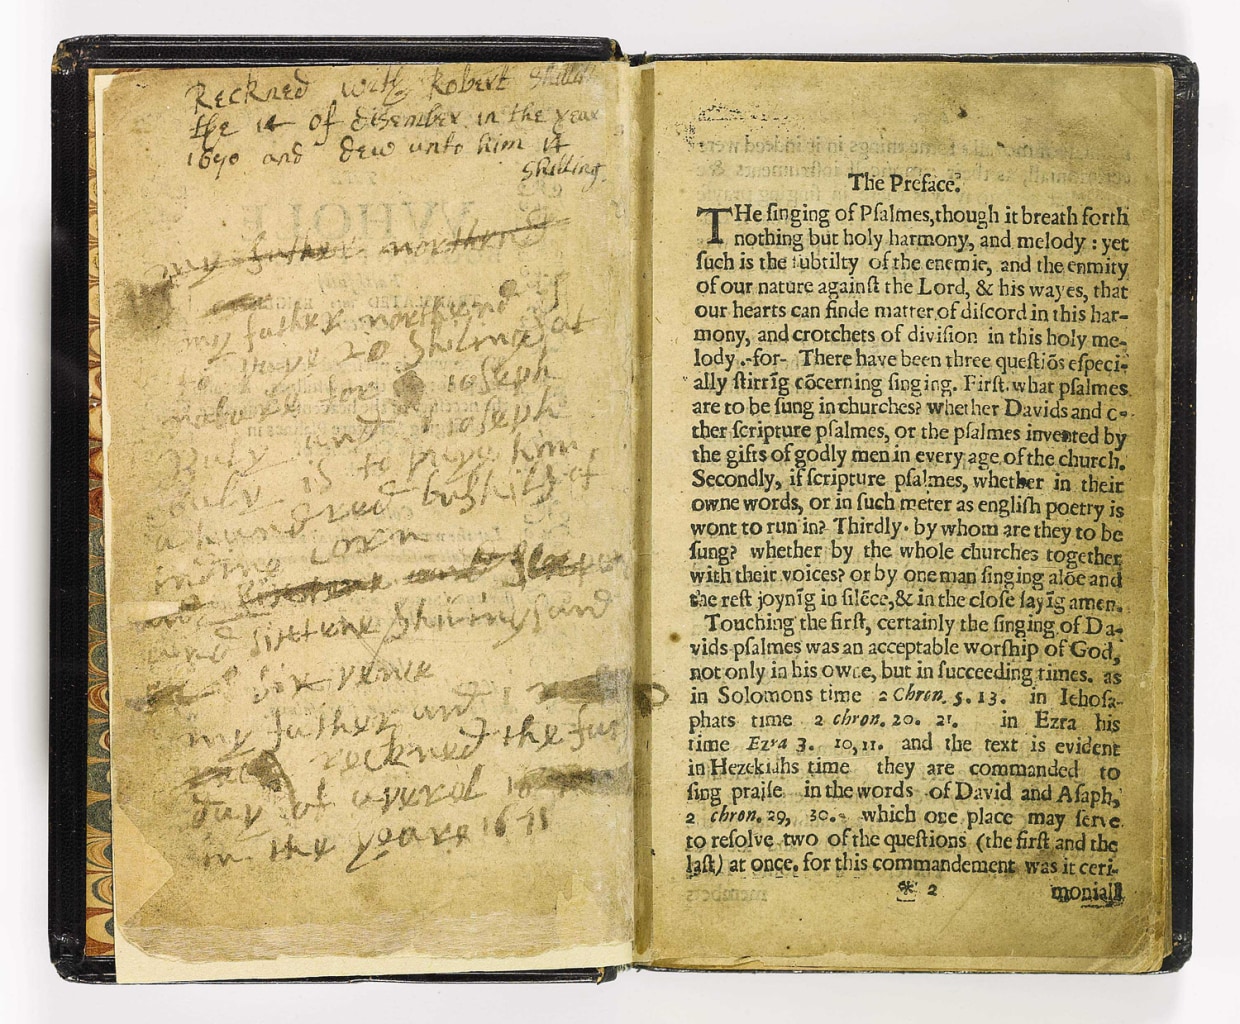 Reckned with Robert
the 14 of disember in the year
1670 and dew unto him 14
shilling
my father northend
my father northend
to have 20 Shilings at
for Joseph
and Joseph
July 15 to pay him
a hundred bushils of
indine corn
and sixtene Shilings and
six pence
my father and i
reckned the
day of averel
in the yeare 1671
The Preface.
THe ſinging of Pſalmes, though it breath forth
nothing but holy harmony, and melody : yet
ſuch is the ſubtilty of the enemie, and the enmity
of our nature againſt the Lord, & his wayes, that
our hearts can finde matter of diſcord in this har-
mony, and crotchets of diviſion in this holy me-
lody .-for- There have been three queſtiõs eſpeci-
ally ſtirrĩg cõcerning ſinging. Firſt. what pſalmes
are to be ſung in churches? whether Davids and o-
ther ſcripture pſalmes, or the pſalmes invented by
the gifts of godly men in every age of the church.
Secondly, if ſcripture pſalmes, whether in their
owne words, or in ſuch meter as engliſh poetry is
wont to run in? Thirdly. by whom are they to be
ſung? whether by the whole churches together
with their voices? or by one man ſinging alõe and
the reſt joynĩg in ſilẽce, & in the cloſe ſayĩg amen.
Touching the firſt, certainly the ſinging of Da-
vids pſalmes was an acceptable worſhip of God,
not only in his owne, but in ſucceeding times. as
in Solomons time 2 Chron. 5. 13. in Iehoſa-
phats time 2 chron. 20. 21. in Ezra his
time Ezra 3. 10, 11. and the text is evident
in Hezekiahs time they are commanded to
ſing praiſe in the words of David and Aſaph,
2 chron. 29, 30. which one place may ſerve
to reſolve two of the queſtions (the firſt and the
laſt) at once. for this commandement was it ceri-
* 2 moniall